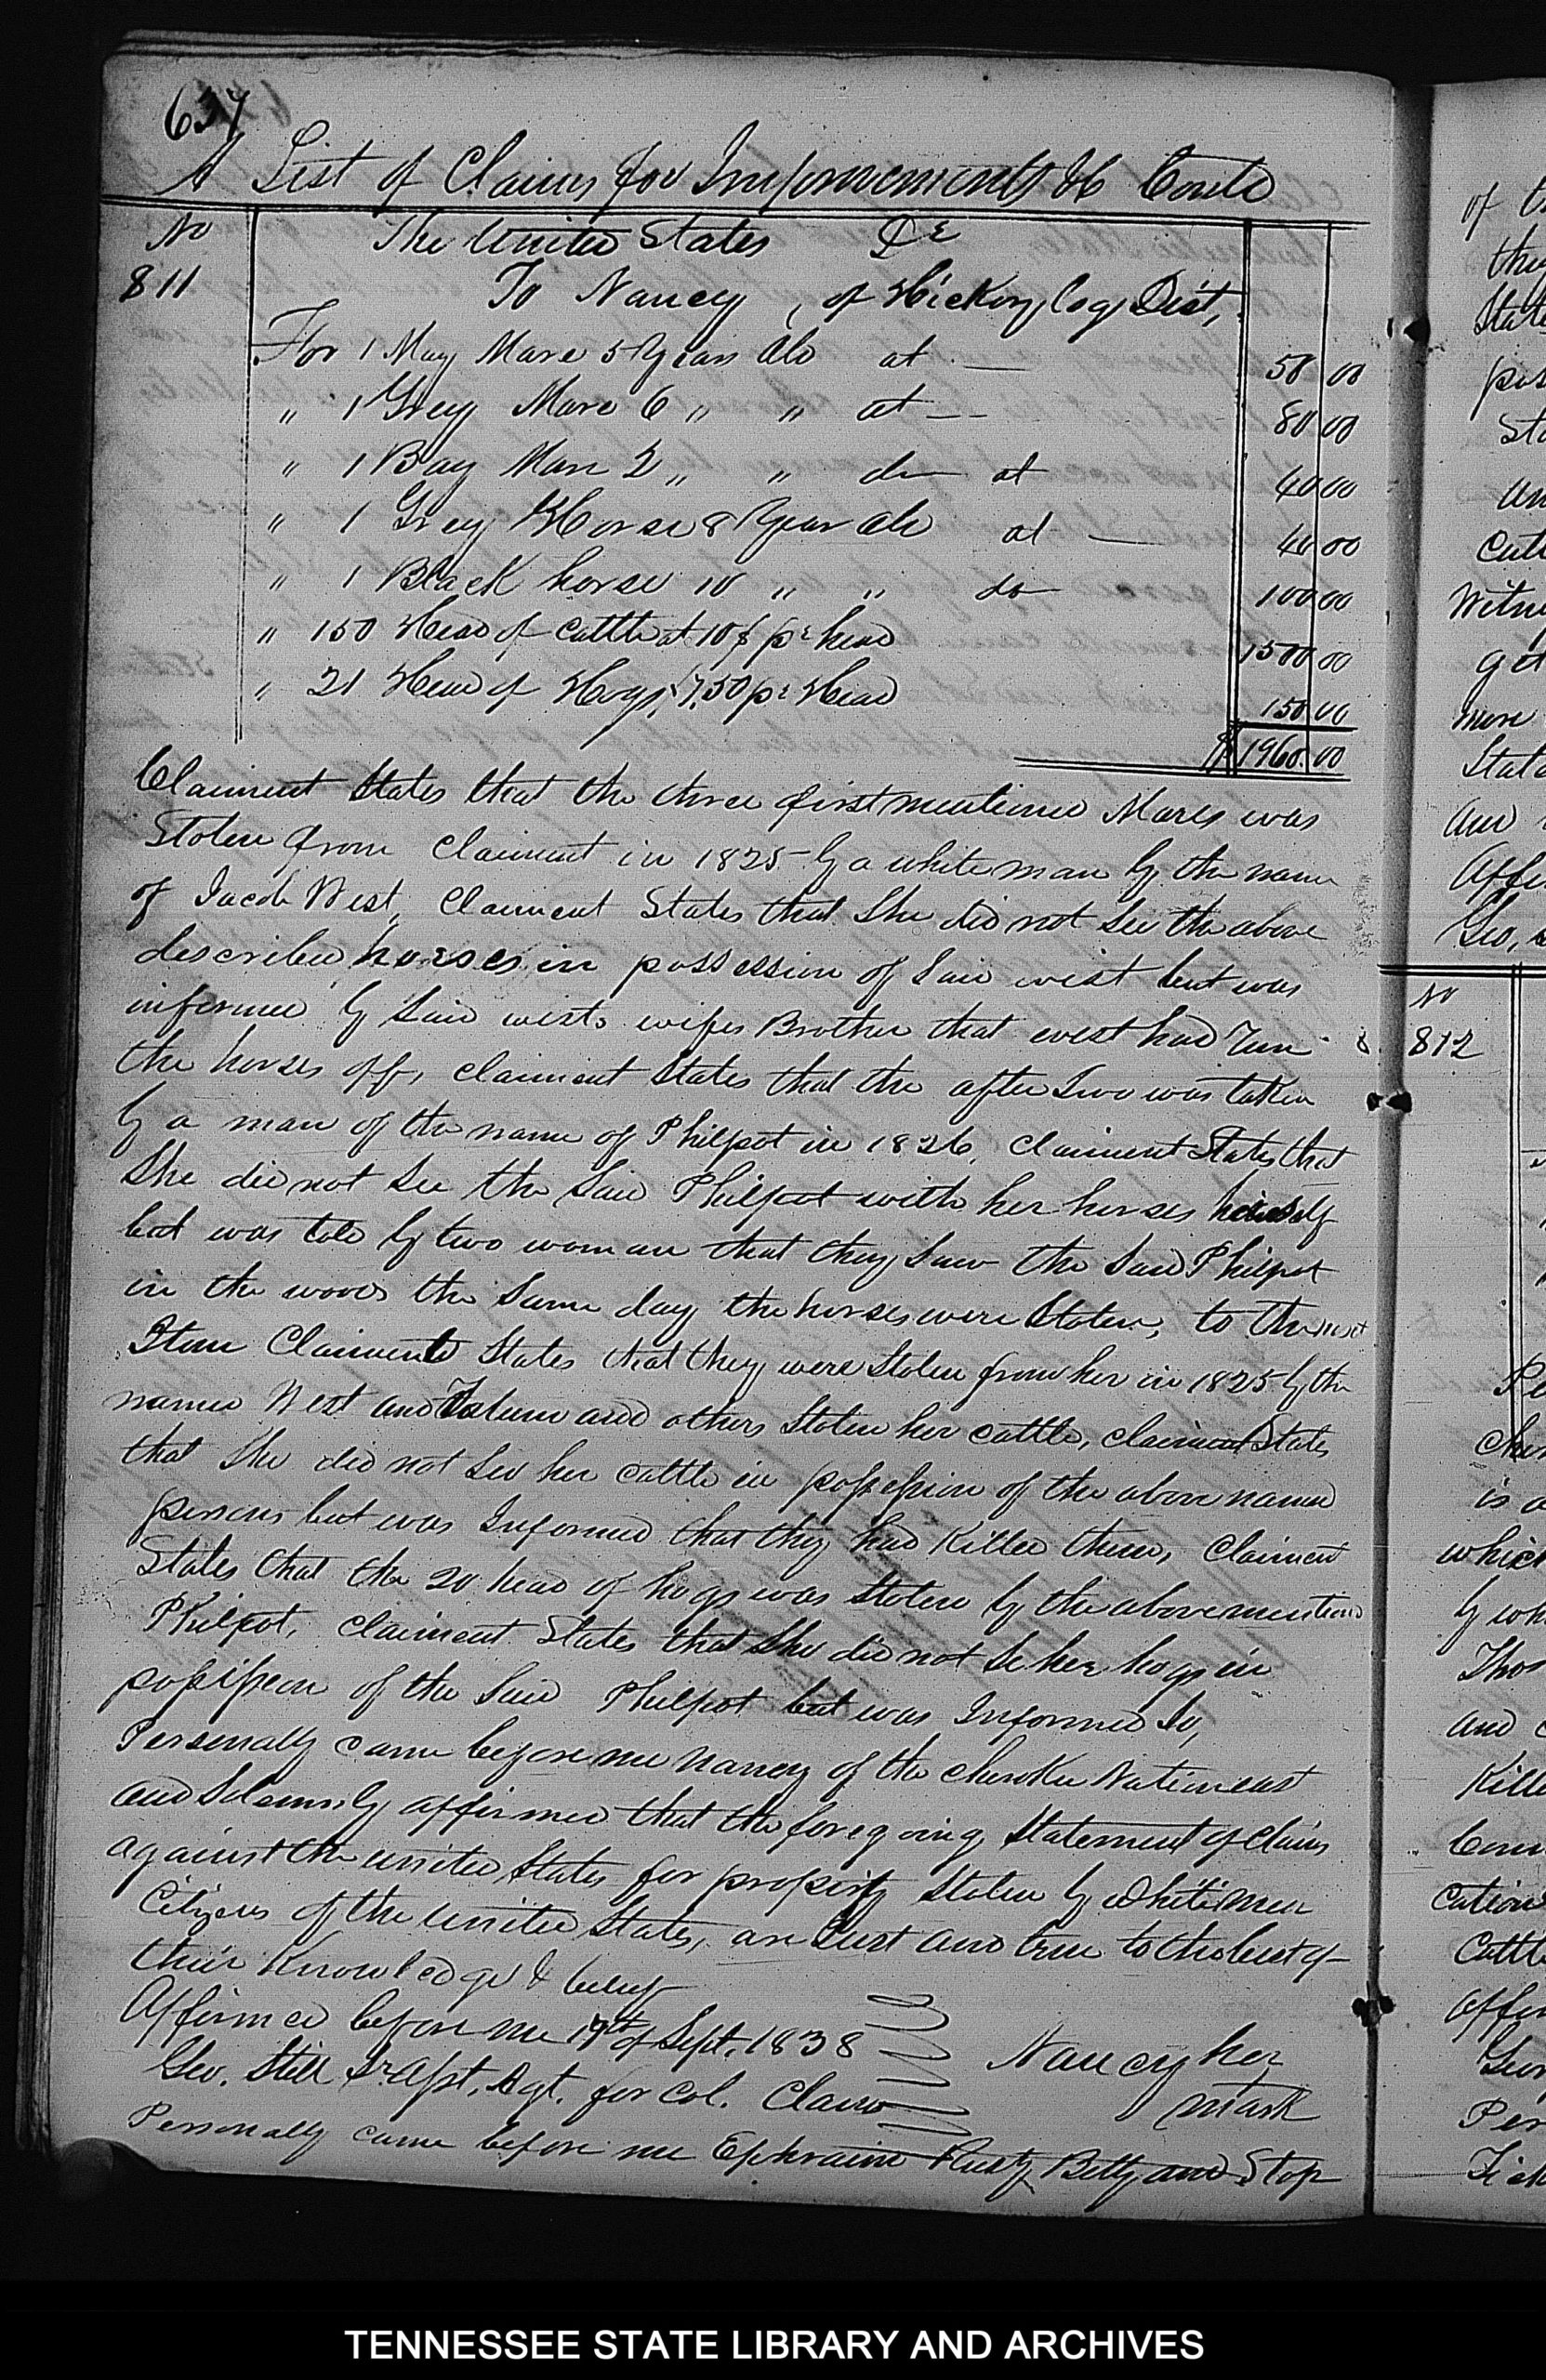 637
A List of Claims for Improvements &c Contd
No The United States Dr
811 To Nancy, of Hickory log Dist,
For 1 May Mare 5 Years Old at — 50 00
" 1 Grey Mare 6 " " at — 80 00
" 1 Bay Mare 2 " " do at 40 00
" 1 Grey Horse 8 Year Old at — 40 00
" 1 Black horse 10 " " do 100 00
" 150 Head of Cattle at 10 $ pr head 1500 00
" 21 Head of Hogs, 7,50 pr Head 150 00
$ 1960.00
Claiment States that the three first mentioned Mares was
Stolen from Claiment in 1825 by a white man by the name
of Jacob West, Claiment States that She did not See the above
described horses in possession of Said west but was
informed by Said wests wifes Brother that west had Run
the horses off, claiment States that the after two was taken
by a man of the name of Philpot in 1826, Claiment States that
She did not See the Said Philpot with her horses herself
but was told by two woman that they Saw the Said Philpot
in the woods the Same day the horses were Stolen, to the next
Item Claiment States that they were Stolen from her in 1825 by the
named West and and others Stolen her cattle, claiment States
that She did not See her Cattle in possession of the above named
persons but was Informed that they had Killed them, Claiment
States that the 20 head of hogs was Stolen by the above mentiond
Philpot, Claiment States that She did not Se her hogs in
possission of the Said Philpot but was Informed So,
Personally came before me Nancy of the Cherokee Nation east
and Solemnly affirmed that the foregoing Statement of Claims
against the united States for property Stolen by White men
Citizens of the United States, are Just and true to the best of
their Knowledge & belief
Affirmed before me 19th of Sept. 1838
Nancy her
Geo. Still Sr Asst. Agt. for Col. Claims
mark
Personally came before me Ephraim Rusty Betty and Stop
of
they
State
pos
Sta
an
Catt
Witne
get
more
State
and
Affir
Geo,
No
812
Pe
Cher
is a
which
by wh
Thos
and
Kille
Cation
Cattle
Affir
Geor
Per
TENNESSEE STATE LIBRARY AND ARCHIVES